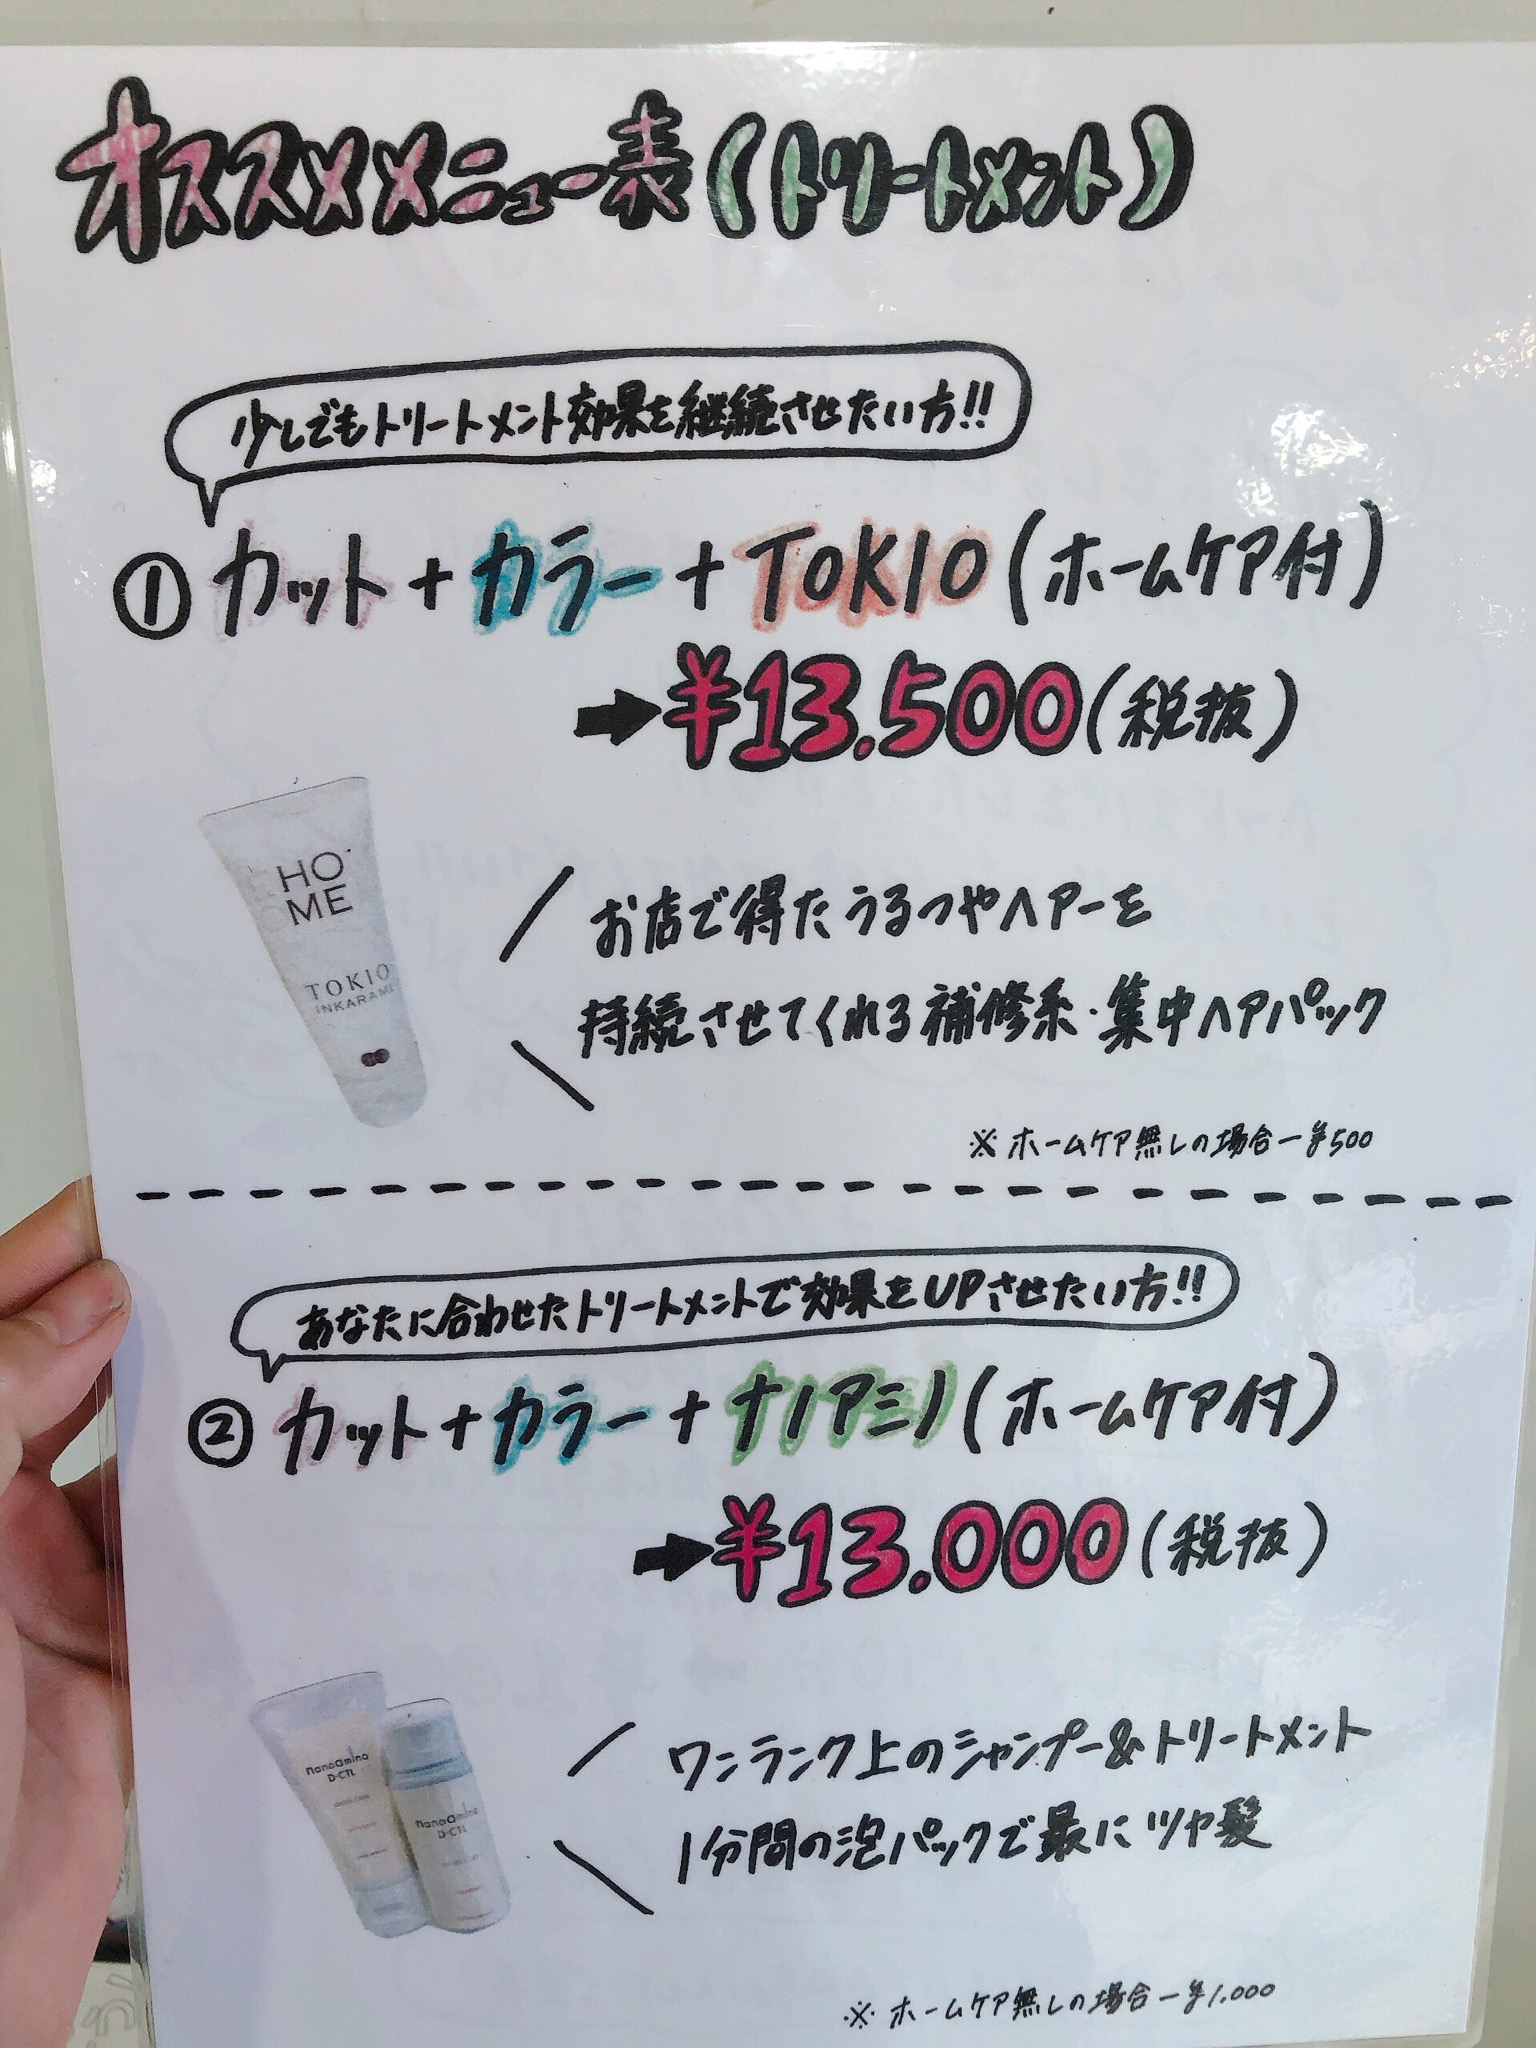 オススメメニュー表(トリートメント)
少しでもトリートメント効果を継続させたい方!!
①カット+カラー+TOKIO(ホームケア付)
➡¥13.500(税抜)
HO
ME
TOKIO
INKARAMI
お店で得たうるつやヘアーを
持続させてくれる補修系・集中ヘアパック
※ホームケア無しの場合-¥500
あなたに合わせたトリートメントで効果をUPさせたい方!!
②カット+カラー+ナノアミノ(ホームケア付)
➡¥13.000(税抜)
nanoamino
D-CTL
nanoamino
D-CTL
ワンランク上のシャンプー&トリートメント
1分間の泡パックで最にツヤ髪
※ホームケア無しの場合-¥1.000